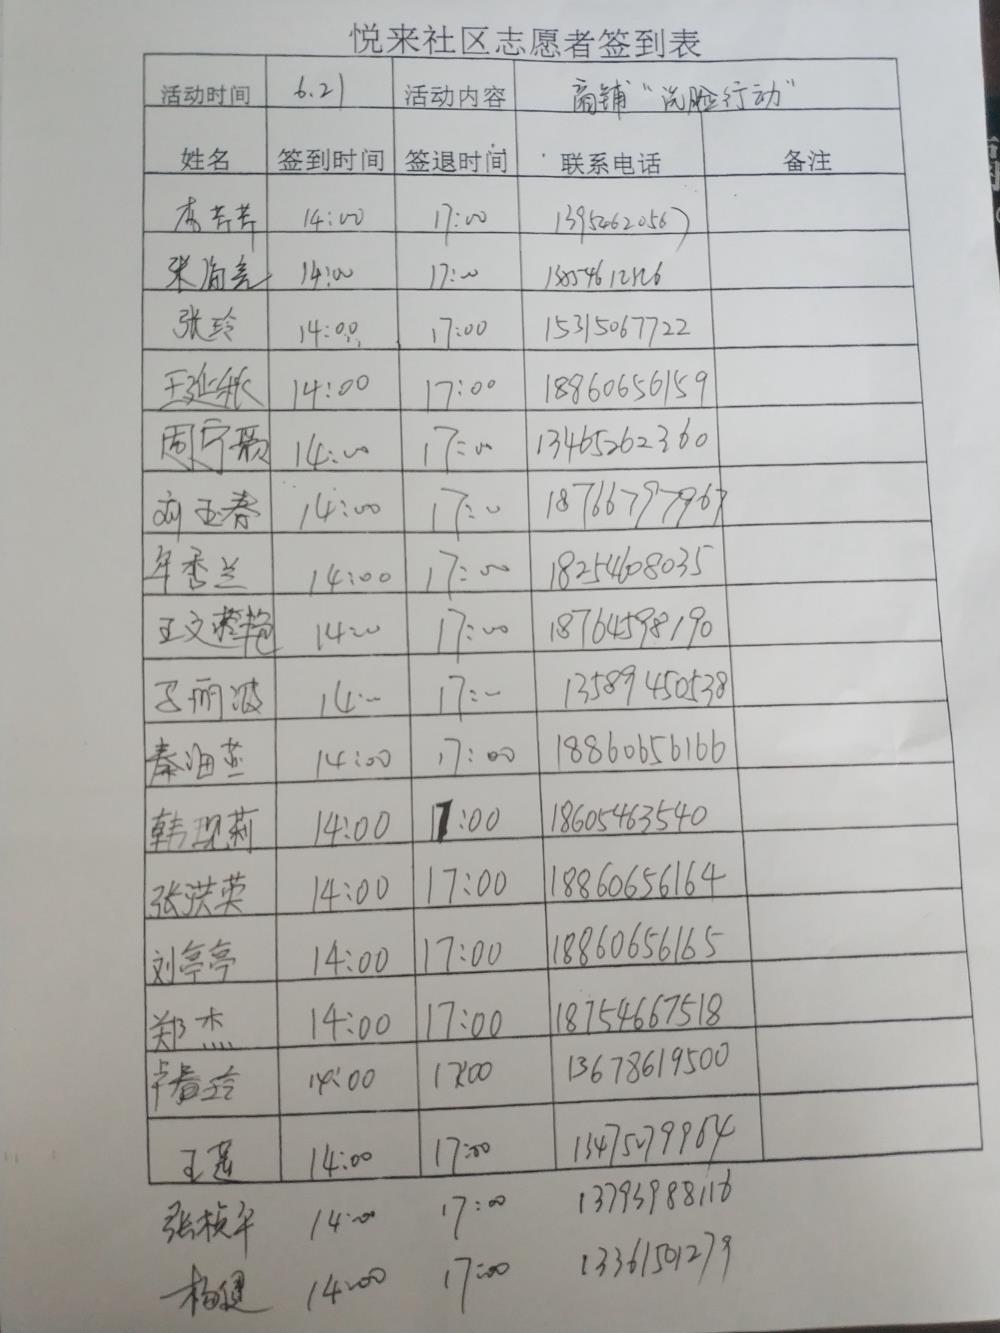 悦来社区志愿者签到表
活动时间 6.21 活动内容 商铺“洗脸行动”
姓名 签到时间 签退时间 联系电话 备注
李芹芹 14:00 17:00 13954620567
张海亮 14:00 17:00
张玲 14:00 17:00 15315067722
王延彩 14:00 17:00 18860656159
周宁 14:00 17:00 13465262360
刘玉春 14:00 17:00 18766797967
年秀兰 14:00 17:00 18254608035
王文艳 14:00 17:00 18764598190
丽波 14:00 17:00 13589450538
秦海燕 14:00 17:00 18860656166
韩现莉 14:00 17:00 18605463540
张洪英 14:00 17:00 18860656164
刘亭亭 14:00 17:00 18860656165
郑杰 14:00 17:00 18754667518
卢春玲 14:00 17:00 13678619500
王 14:00 17:00 13475079964
张桢平 14:00 17:00 13793988116
杨健 14:00 17:00 13361501279